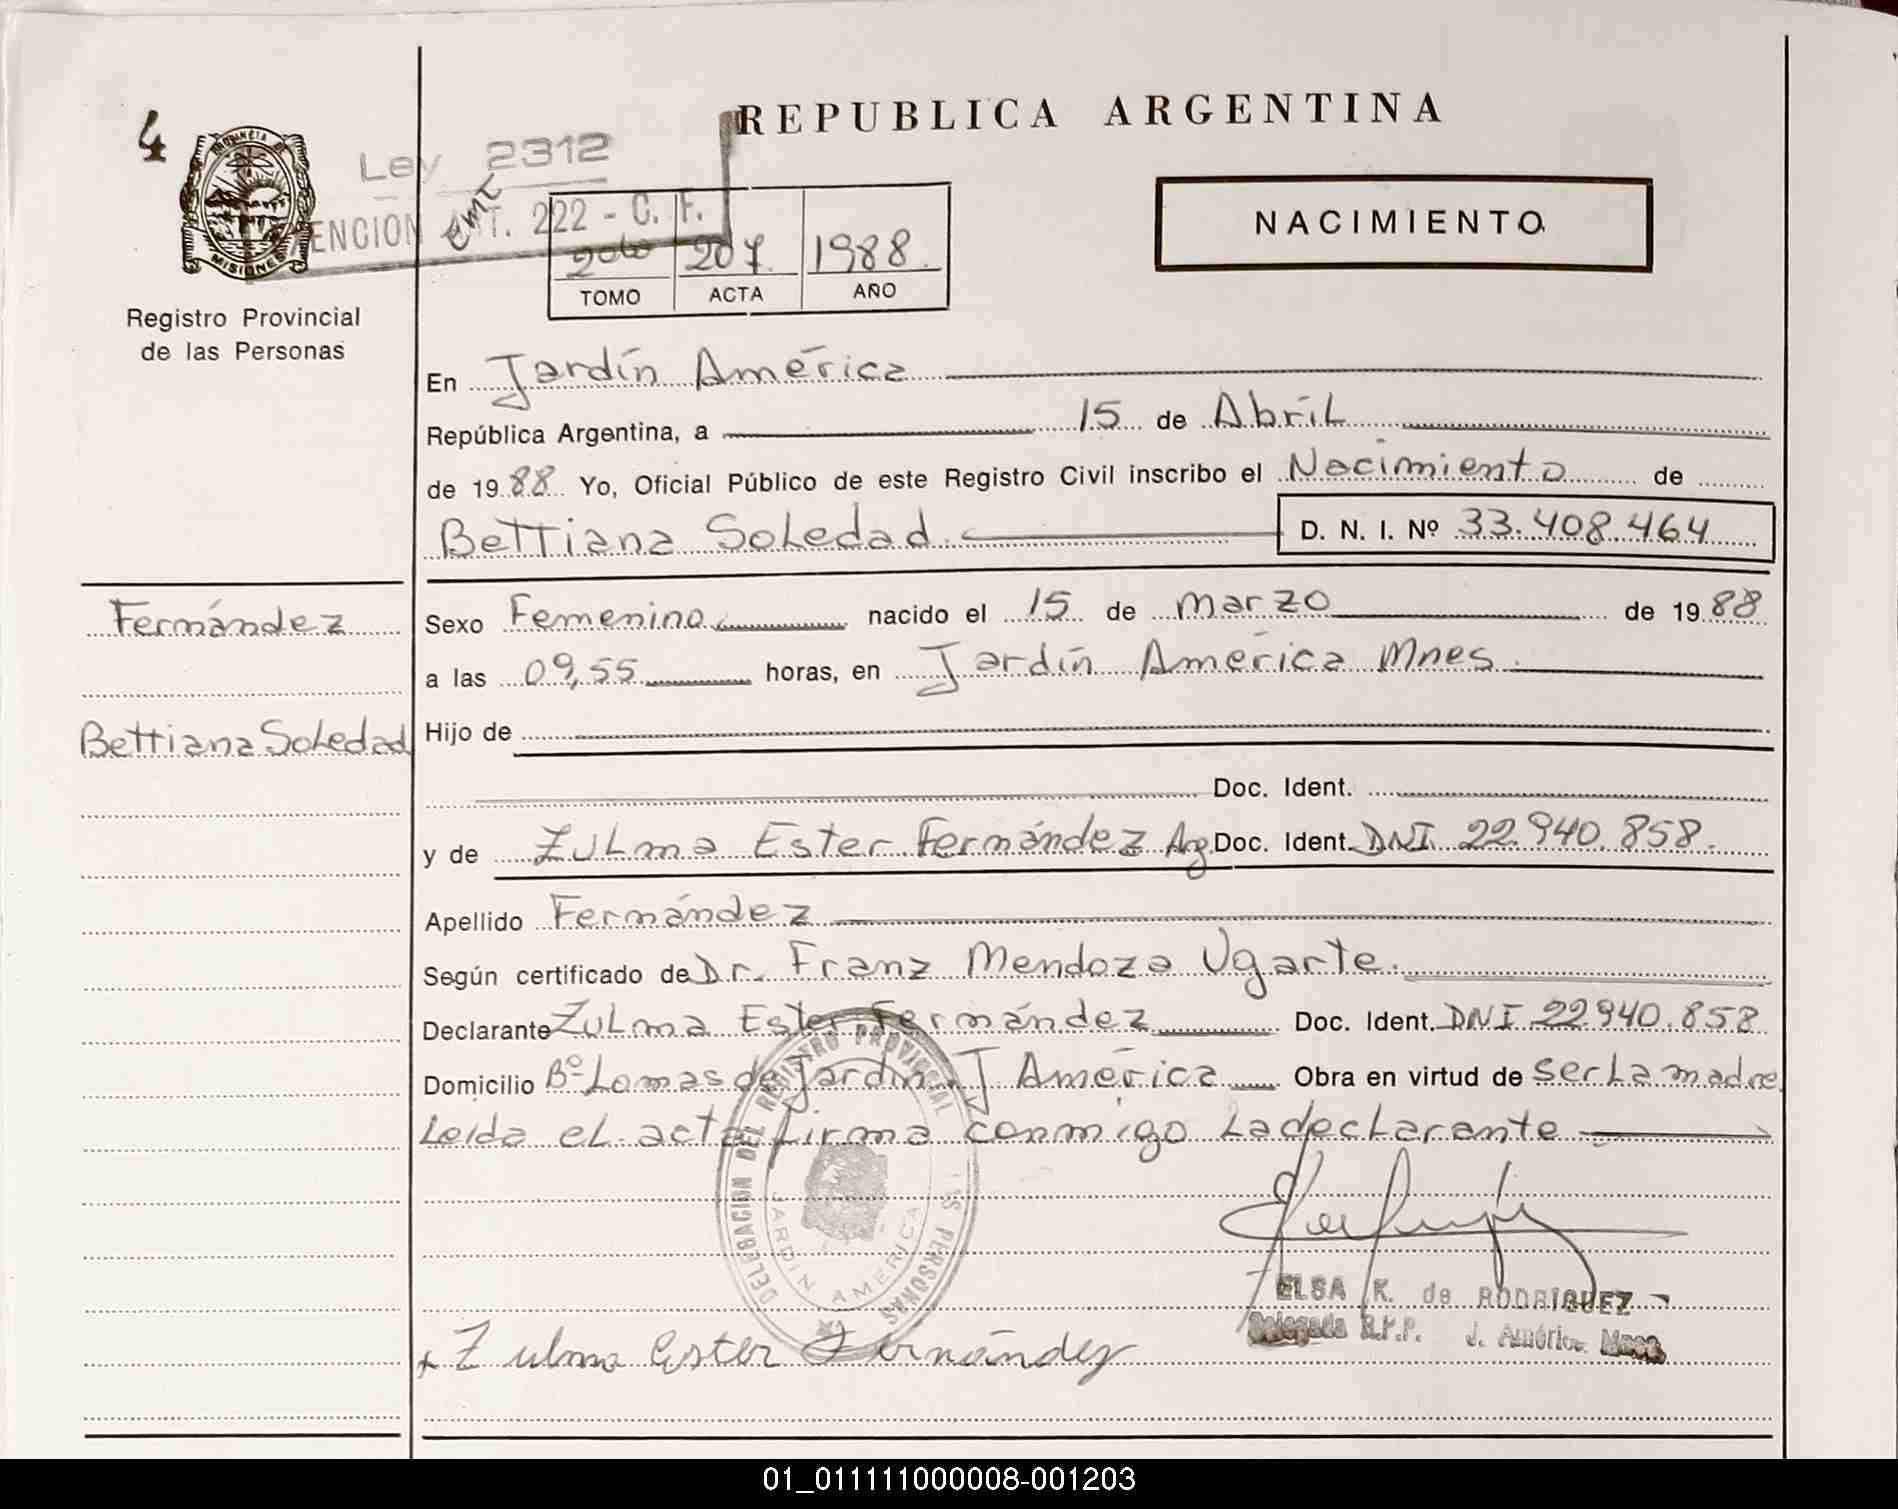 REPUBLICA ARGENTINA
4
PROVINCIA DE
MISIONES
Ley 2312
ENCION ART. 222 - C. F.
NACIMIENTO
207 1988
TOMO ACTA AÑO
Registro Provincial
de las Personas
En Jardín América
República Argentina, a 15 de Abril
de 1988 Yo, Oficial Público de este Registro Civil inscribo el Nacimiento de
Bettiana Soledad D. N. I. Nº 33.408.464
Fernández
Bettiana Soledad
Sexo Femenino nacido el 15 de Marzo de 1988
a las 09,55 horas, en Jardín América Mnes.
Hijo de
Doc. Ident.
y de Zulma Ester Fernández Arg Doc. Ident. DNI 22.940.858.
Apellido Fernández
Según certificado de Dr. Franz Mendoza Ugarte.
Declarante Zulma Ester Fernández Doc. Ident. DNI 22940.858
Domicilio Bº Lomas de Jardín J América Obra en virtud de ser La madre
Leida el acta firma conmigo La declarante
DELEGACION DEL REGISTRO PROVINCIAL PERSONAS
JARDIN AMERICA
ELSA K. de RODRIGUEZ
Delegada R.P.P. J. América Mnes.
x Zulma Ester Fernández
01_011111000008-001203